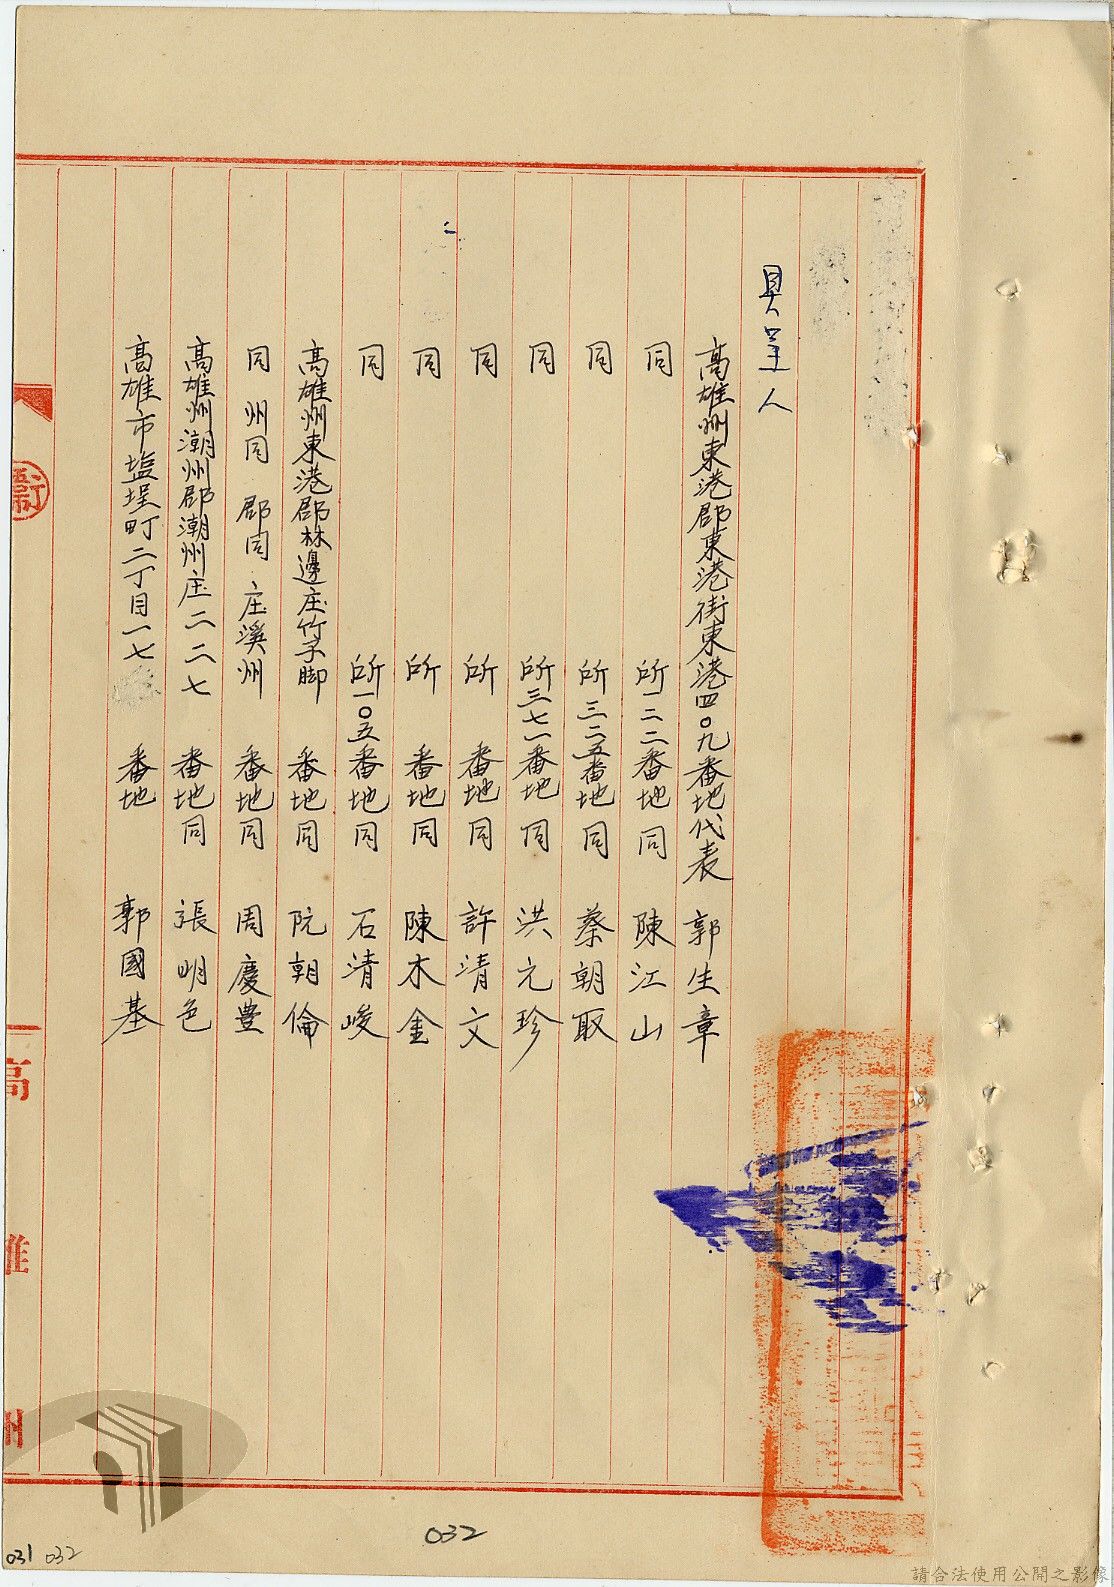 具呈人
高雄州東港郡東港街東港四〇九番地代表 郭生章
同 所一二二番地同 陳江山
同 所三二五番地同 蔡朝取
同 所三七一番地同 洪元珍
同 所 番地同 許清文
同 所 番地同 陳木金
同 所一〇五番地同 石清峻
高雄州東港郡林邊庄竹子脚 番地同 阮朝倫
同州同郡同庄溪州 番地同 周慶豊
高雄州潮州郡潮州庄二二七 番地同 張明色
高雄市塩埕町二丁目一七 番地 郭國基
高雄州
032
031 032
請合法使用公開之影像